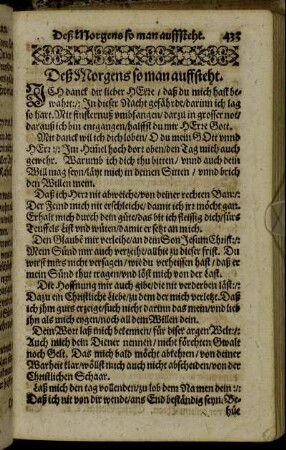 Deß Morgens so man auffsteht. 433
Deß Morgens so man auffsteht.
ICH danck dir lieber HErre / daß du mich hast be-
wahrt:,: In dieser Nacht gefährde / darum ich lag
so hart. Mit finsternuß umbfangen / darzu in grosser not /
darauß ich bin entgangen / halffst du mir HErre Gott.
Mit danck wil ich dich loben / O du mein GOtt vnnd
HErr:,: Im Himel hoch dort oben / den Tag mich auch
gewehr. Warumb ich dich thu bitten / vnnd auch dein
Will mag seyn / läyt mich in deinen Sitten / vnnd brich
den Willen mein.
Daß ich Herr nit abweiche / von deiner rechten Ban:,:
Der Feind mich nit erschleiche / damit ich irr möcht gan.
Erhalt mich durch dein güte / das bit ich fleissig dich / fürs
Teuffels List vnd wüten / damit er setzt an mich.
Den Glaubē mir verleihe / an dem Son Jesum Christ:,:
Mein Sünd mir auch verzeihe / allhie zu dieser frist. Du
wirst mirs nicht versagen / wie du verheissen hast / daß er
mein Sünd thut tragen / vnd löst mich von der Last.
Die Hoffnung mir auch gibe / die nit verderben läst:,:
Dazu ein Christliche Liebe / zu dem der mich verletzt. Daß
ich ihm guts erzeige / such nicht darinn das mein / vnd lieb
ihn als mich eygen / noch all dem Willen dein.
Dein Wort laß mich bekennen / für diser argen Welt:,:
Auch mich dein Diener nennen / nicht förchten Gwalt
noch Gelt. Das mich bald möcht abkehren / von deiner
Warheit klar / wöllst mich auch nicht abscheiden / von der
Christlichen Schaar.
Laß mich den tag vollenden / zu lob dem Namen dein:,:
Daß ich nit von dir wende / ans End beständig seyn. Be-
hüt